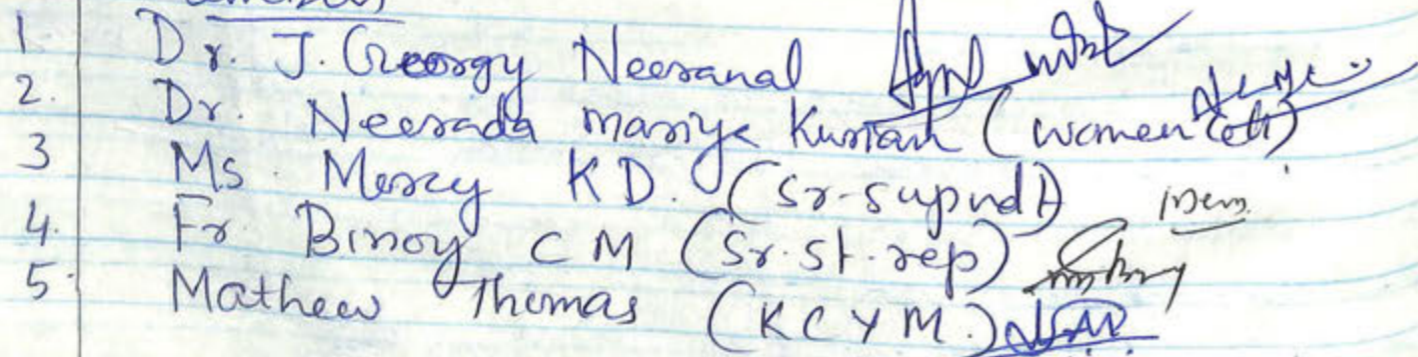 1. Dr. J. Georgy Neeranal
2. Dr. Neerada Mariya Kurian (women cell)
3 Ms. Mercy K D. (Sr-supndt)
4. Fr Binoy C M (Sr.st.rep)
5. Mathew Thomas (KCYM.)